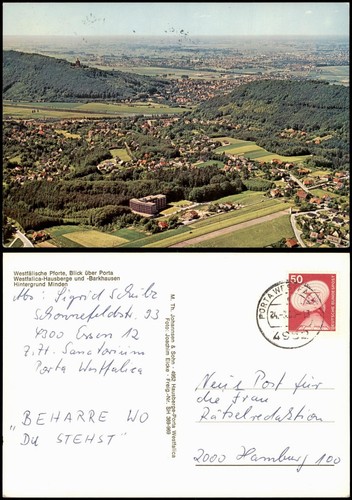 Westfälische Pforte, Blick über Porta
Westfalica-Hausberge und -Barkhausen
Hintergrund Minden
Abs: Sigrid Scheibe
Schönefeldstr. 23
4300 Essen 12
z. Zt. Sanatorium
Porta Westfalica
"BEHARRE WO
DU STEHST"
M. Th. Johannsen & Sohn · 4952 Hausberge-Porta Westfalica
Foto: Joachim Eicke · Freig.-Nr.
PORTA WE
24.
4952
50
DEUTSCHE BUNDESPOST
Neue Post für
die Frau
Rätselredaktion
2000 Hamburg 100